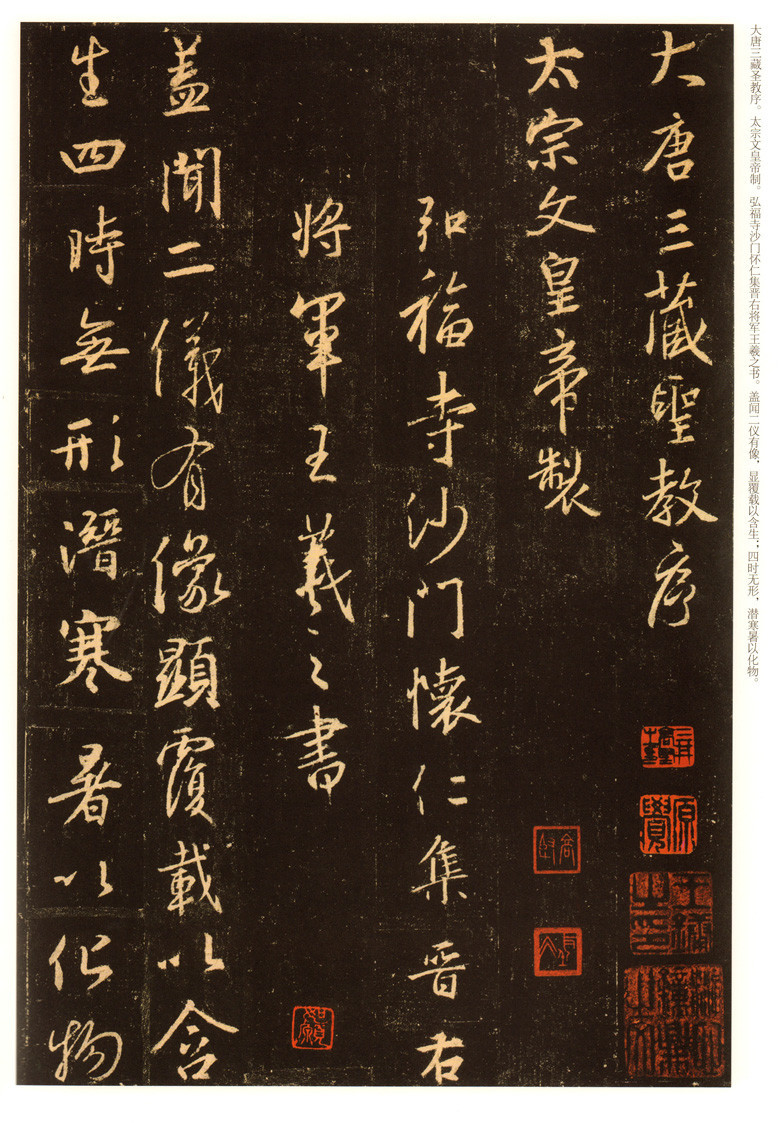 大唐三藏圣教序。太宗文皇帝制。弘福寺沙门怀仁集晋右将军王羲之书。盖闻二仪有像，显覆载以含生；四时无形，潜寒暑以化物。
大唐三藏聖教序
太宗文皇帝製
弘福寺沙門懷仁集晉右
將軍王羲之書
蓋聞二儀有像顯覆載以含
生四時無形潛寒暑以化物